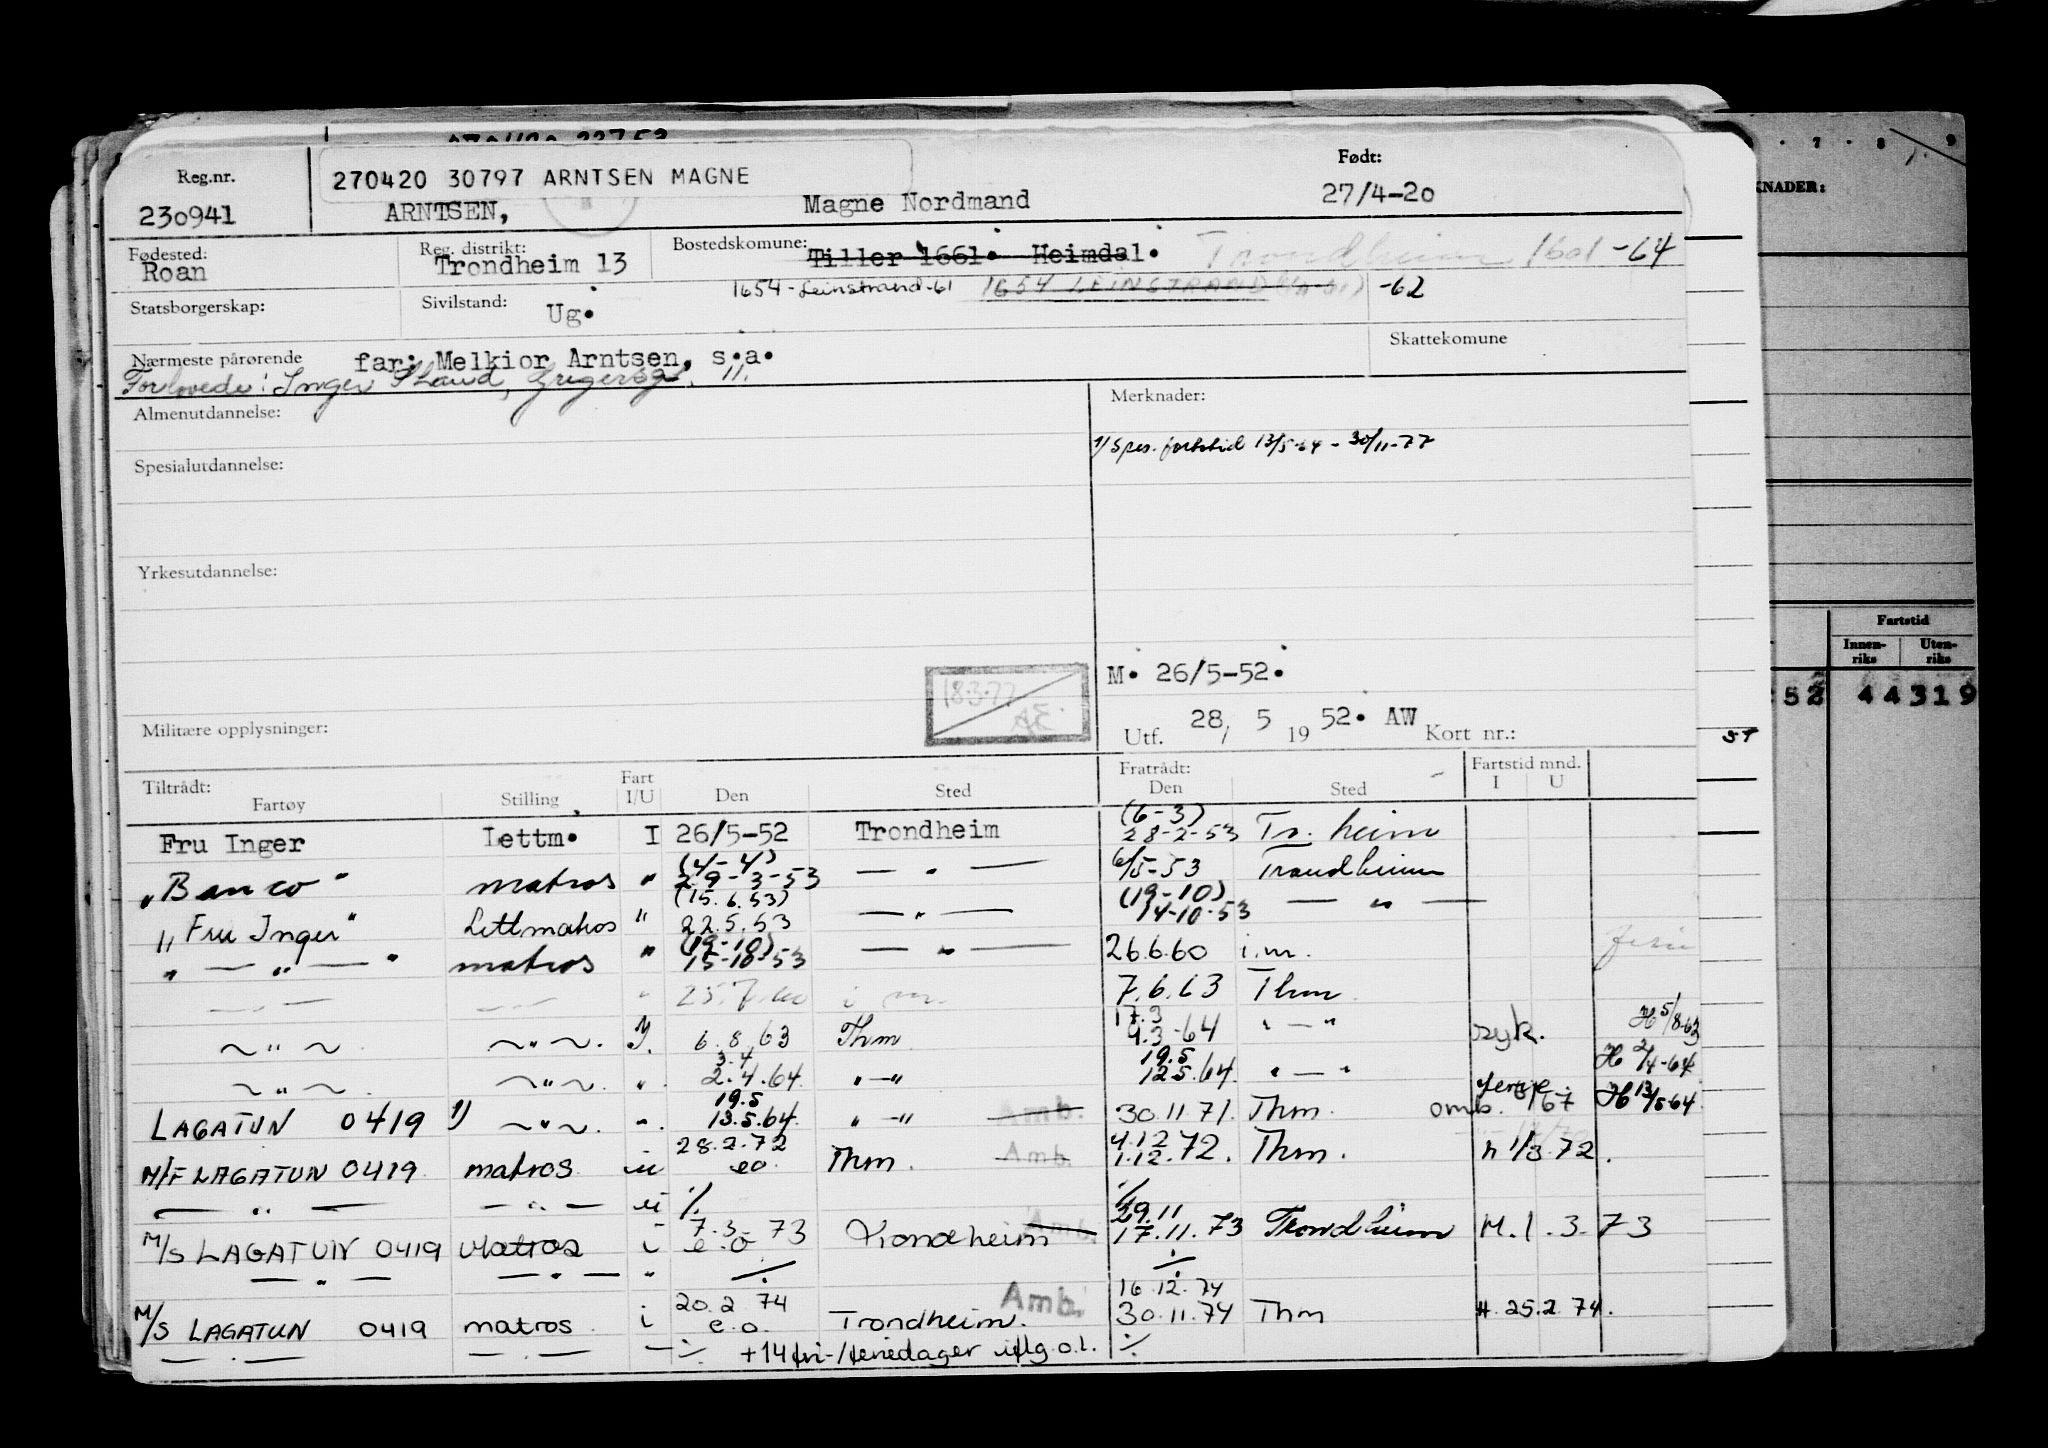 270420 30797 ARNTSEN MAGNE
Reg.nr. 230941 ARNTSEN, Magne Nordmand Født: 27/4-20
Fødested: Roan Reg. distrikt: Trondheim 13 Bostedskomune: Tiller 1661. Heimdal. Trondheim 1601 -64
1654 - Leinstrand -61 1654 LEINSTRAND -62
Statsborgerskap: Sivilstand: Ug.
Nærmeste pårørende far: Melkior Arntsen, s.a. Skattekomune
Forlovede: Inger
Almenutdannelse: Merknader:
1) Spes. fartstid 13/5-64 - 30/11-77
Spesialutdannelse:
Yrkesutdannelse:
M. 26/5-52.
18.3.77 AE
Militære opplysninger: Utf. 28/ 5 1952. AW Kort nr.:
Tiltrådt: Fartøy Stilling Fart I/U Den Sted Fratrådt: Den Sted Fartstid mnd. I U
Fru Inger Lettm. I 26/5-52 Trondheim (6-3) 28-2-53 Tr. heim
"Banco" matros " (4-4) 29-3-53 — " — 6/5-53 Trondheim
"Fru Inger" Lettmatros " (15.6.53) 22.5.53 — " — (19-10) 14-10-53 — " —
" — " — " matros " (19-10) 15-10-53 — " — 26.6.60 i.m. ferie
— — — — " 25.7.60 i m. 7.6.63 Thm
~ " ~ ~ " ~. I. 6.8.63 Thm 17.3 9.3-64 " — " syk. H 5/8-63
~ " ~ ~ " ~. ". 3.4 2.4.64. " — " 19.5 12.5.64. " — " ferie H 2/4-64
LAGATUN 0419 1) ~ " ~. ". 19.5 13.5.64. " — " Amb. 30.11.71. Thm. omb. /67 H 13/5-64.
M/F LAGATUN 0419 matros 28.2.72 eo. Thm. Amb. 4.12 1.12.72. Thm. h 1/3.72.
— " — — " — ./. ./.
M/S LAGATUN 0419 Matros i 7.3.73 e.o Trondheim Amb. 29.11 17.11.73 Trondheim M. 1.3.73
— " — — " — " ./. ./.
M/S LAGATUN 0419 matros i 20.2.74 e.o. Trondheim. Amb. 16.12.74 30.11.74 Thm H. 25.2.74.
— . — — . — — ./. +14 fri-/feriedager iflg. o.l. ./.
7 8 9
KNADER:
Fartstid
Innen-riks Uten-riks
52 44319
57